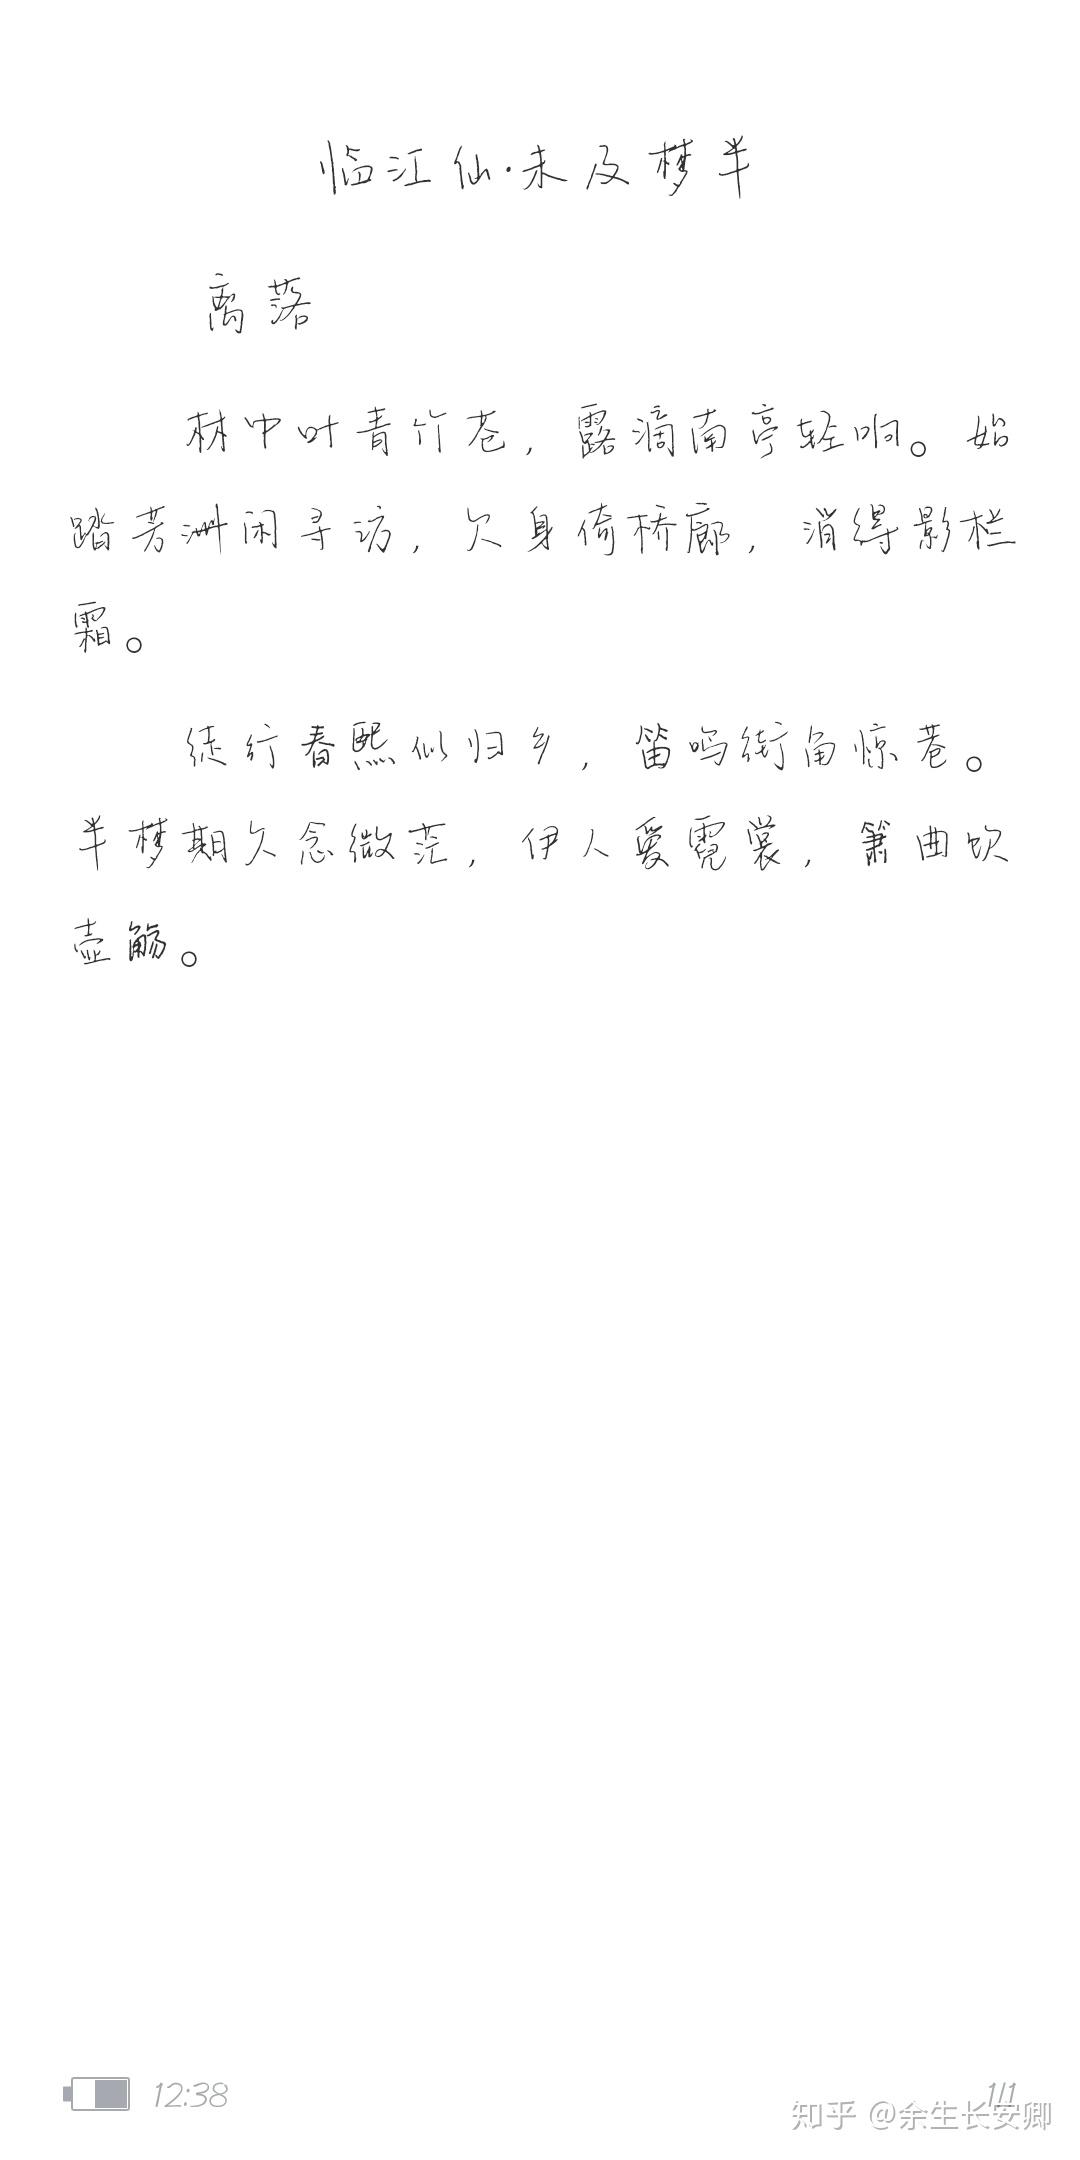 临江仙·未及梦半
离落
林中叶青竹苍，露滴南亭轻响。始
踏芳洲闲寻访，欠身倚桥廊，消得影栏
霜。
徒行春熙似归乡，笛鸣街角惊巷。
半梦期久念微茫，伊人爱霓裳，箫曲饮
壶觞。
12:38
1/1
知乎 @余生长安卿